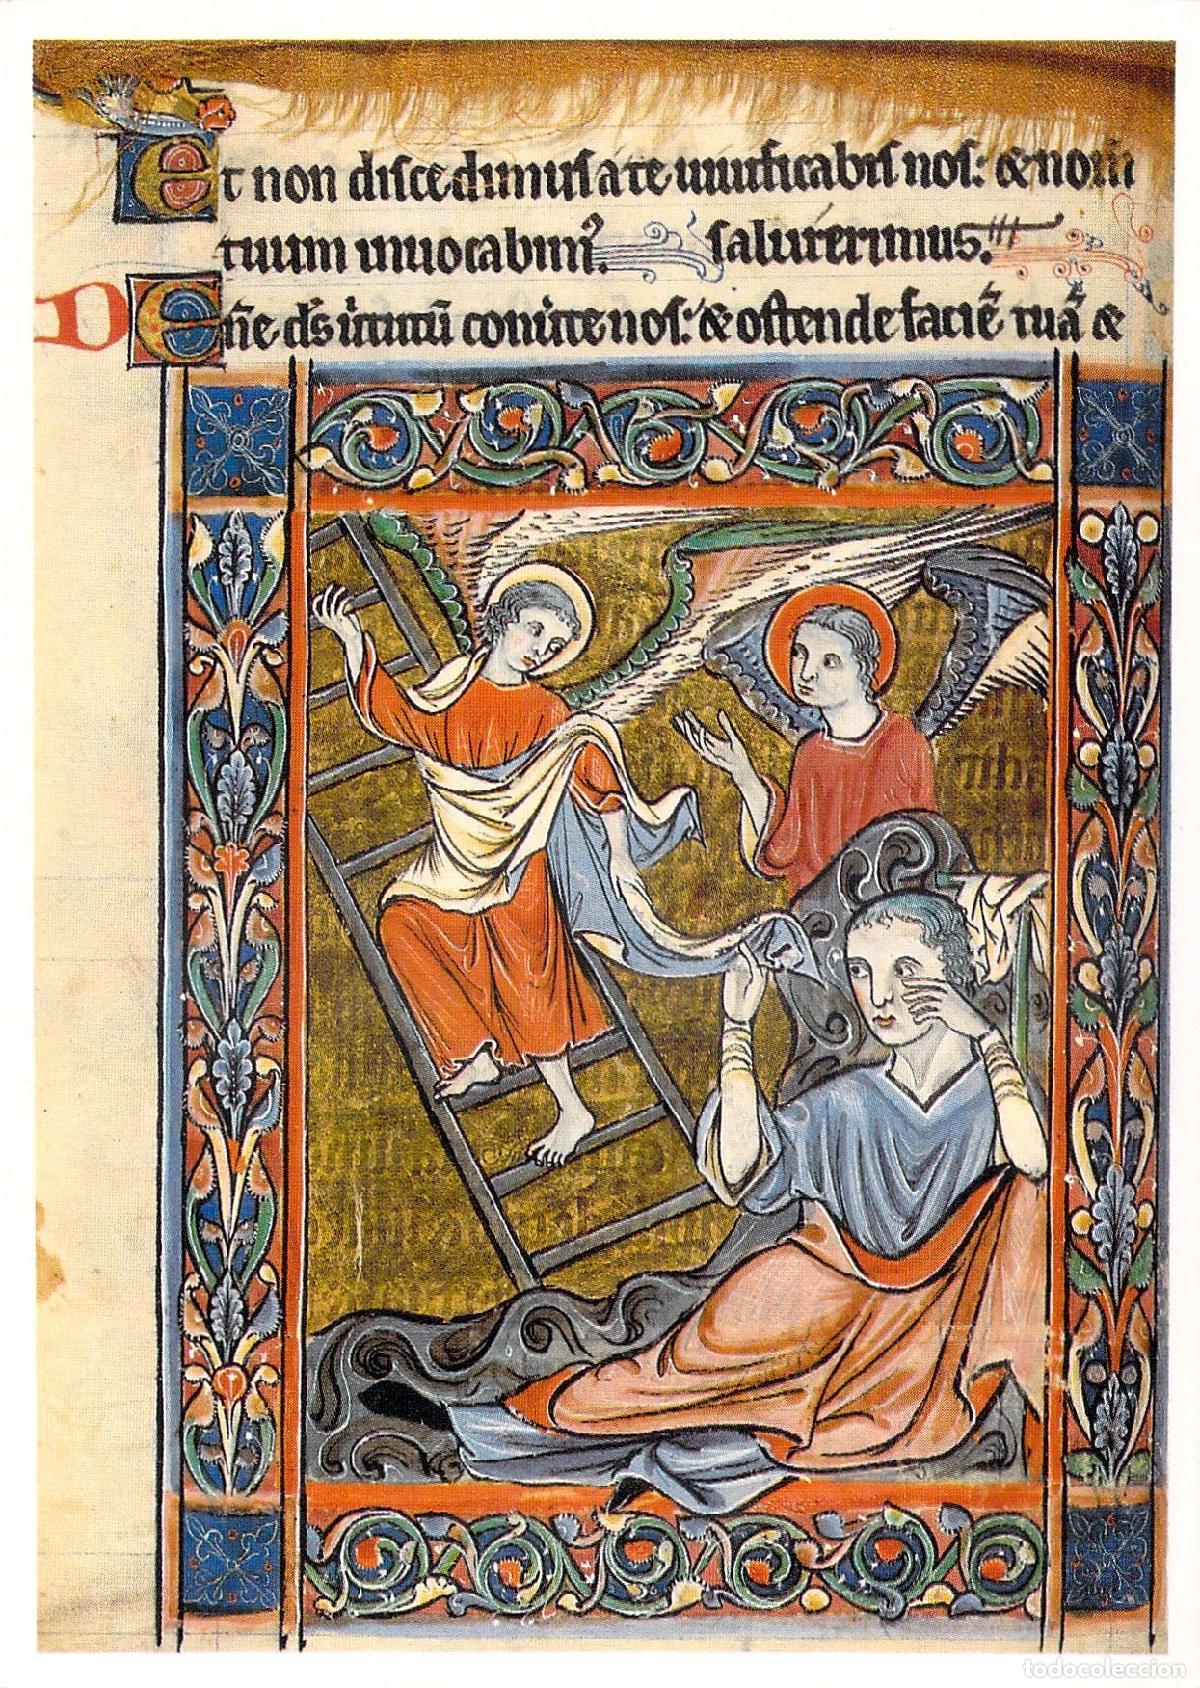 Et non discedimus a te uiuificabis nos: & nom̄
tuum inuocabim⁹. salui erimus.
D Dn̄e ds̄ uirtutū conu̾te nos: & ostende faciē tuā &
todocoleccion